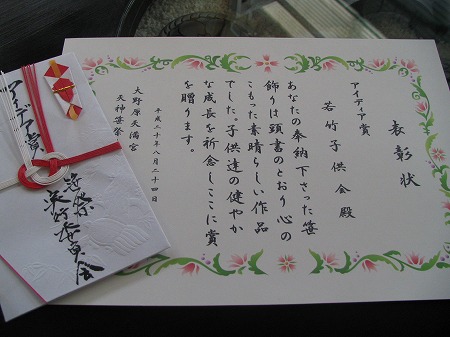 表彰状
アイデア賞
若竹子供会殿
あなたの奉納下さった笹
飾りは頭書のとおり心の
こもった素晴らしい作品
でした。子供達の健やか
な成長を祈念しここに賞
を贈ります。
平成二十年 月二十四日
大野原天満宮
天神笹祭
アイデア賞
笹祭
実行委員会